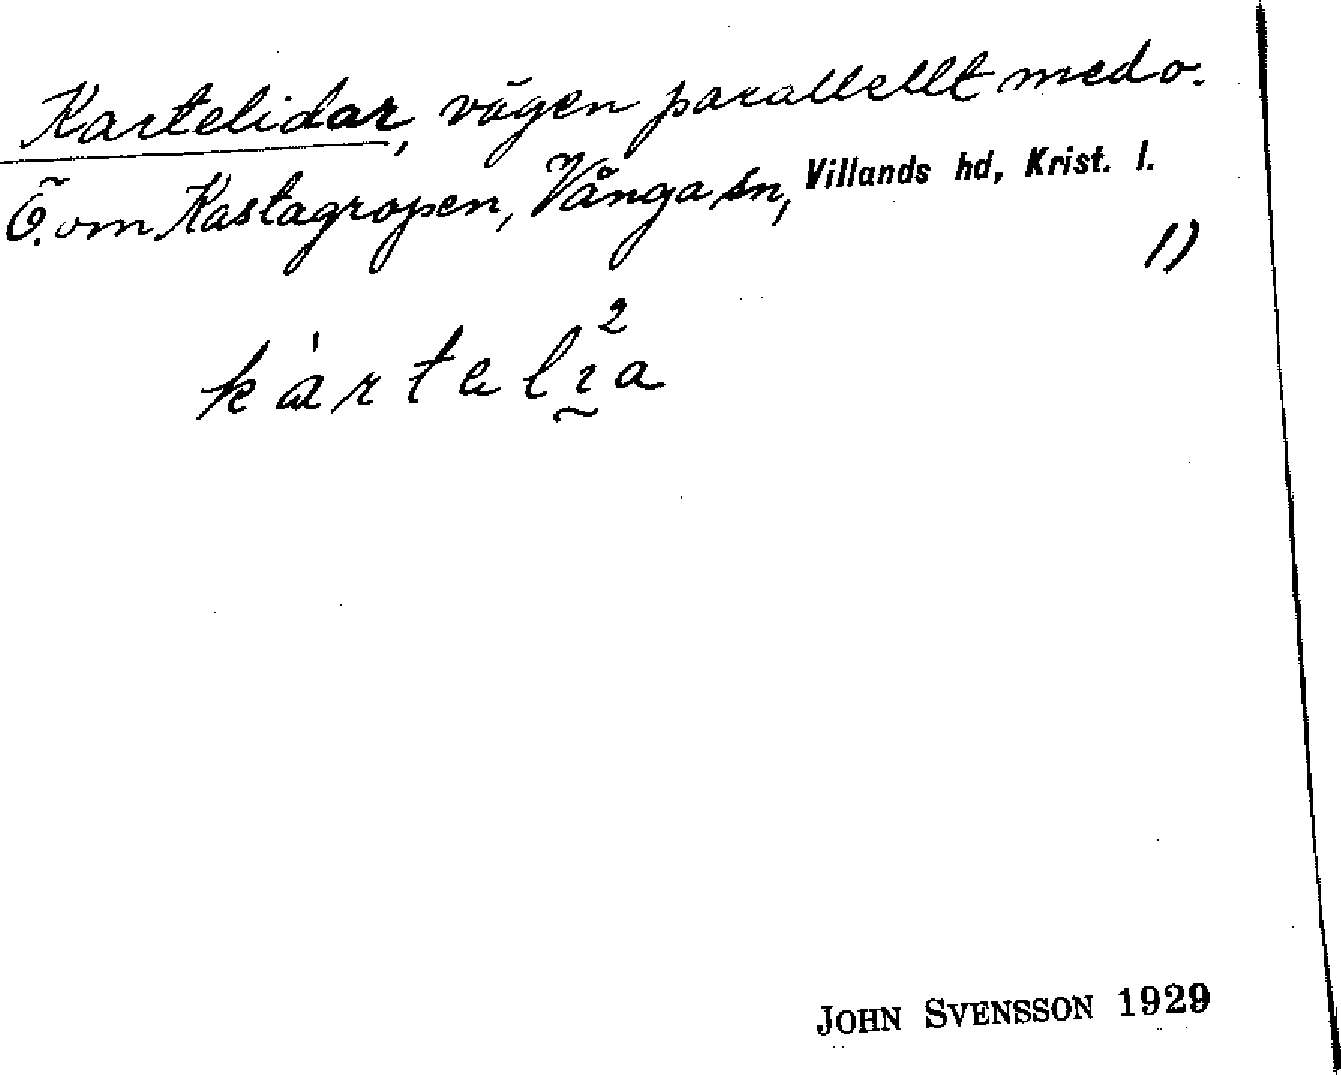 Kartelidar, vägen parallellt med o.
Ö. om Kastagropen, Vånga sn, Villands hd, Krist. l.
1)
kàrtelı̰²a
JOHN SVENSSON 1929